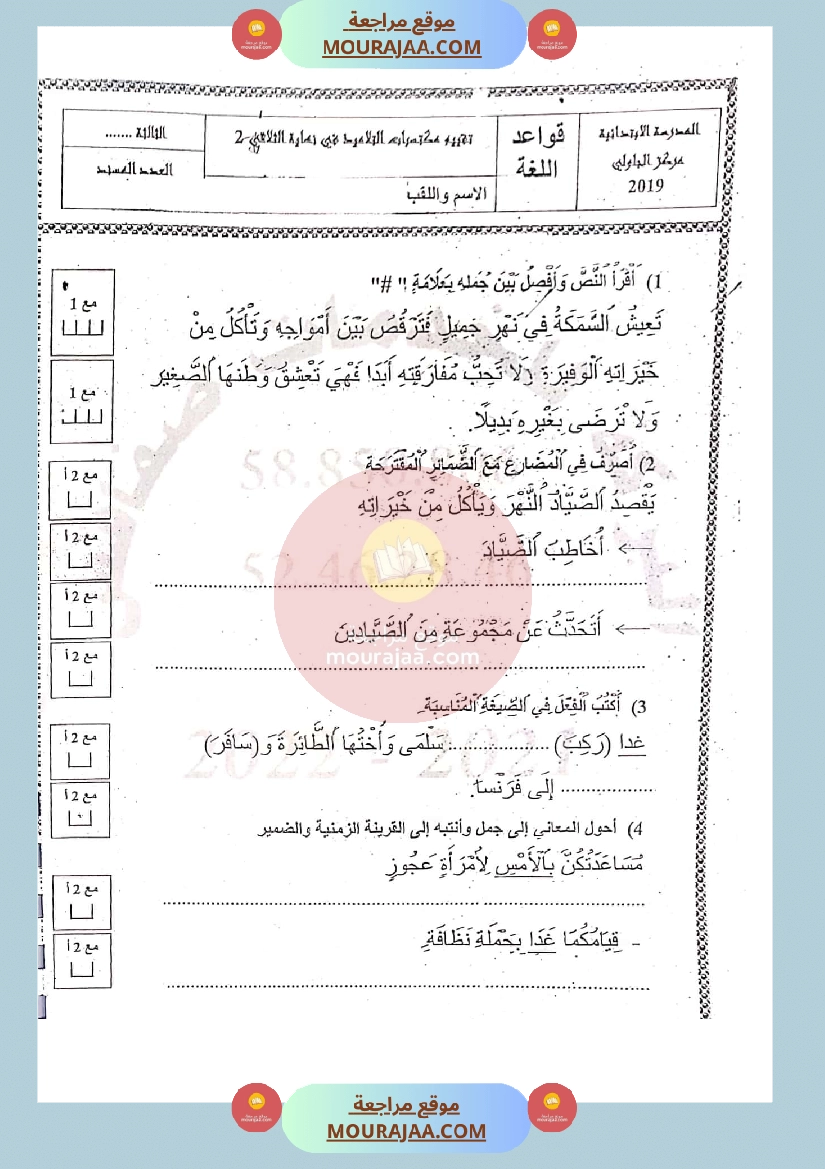 موقع مراجعة
MOURAJAA.COM
المدرسة الابتدائية
مركز الجاولي
2019
قواعد
اللغة
تقييم مكتسبات التلاميذ في نهاية الثلاثي-2
الاسم واللقب
الثالثة .......
العدد المسند
1) أَقْرَأُ النَّصَّ وَأَفْصِلُ بَيْنَ جُمَلِهِ بِعَلَامَةِ " # "
تَعِيشُ السَّمَكَةُ فِي نَهْرٍ جَمِيلٍ فَتَرْقُصُ بَيْنَ أَمْوَاجِهِ وَتَأْكُلُ مِنْ
خَيْرَاتِهِ الْوَفِيرَةِ وَلَا تُحِبُّ مُفَارَقَتِهِ أَبَدًا فَهْيَ تَعْشِقُ وَطَنَهَا الصَّغِير
وَلَا تَرْضَى بِغَيْرِهِ بَدِيلًا.
2) أُصَرِّفُ فِي الْمُضَارِعِ مَعَ الضَّمَائِرِ الْمُقْتَرَحَة
يَقْصِدُ الصَّيَّادُ النَّهْرَ وَيَأْكُلُ مِنْ خَيْرَاتِهِ
← أُخَاطِبُ الصَّيَّادَ
← أَتَحَدَّثُ عَنْ مَجْمُوعَةٍ مِنَ الصَّيَّادِينَ
3) أَكْتُبُ الْفِعْلَ فِي الصِّيغَةِ الْمُنَاسِبَةِ.
غدا (رَكِبَ) .................... سَلْمَى وَأُخْتُهَا الطَّائِرَةَ وَ(سَافَرَ)
.................... إِلَى فَرَنْسَا.
4) أحول المعاني إلى جمل وأنتبه إلى القرينة الزمنية والضمير
مُسَاعَدَتُكُنَّ بِالْأَمْسِ لِامْرَأَةٍ عَجُوزٍ
- قِيَامُكُمَا غَدًا بِحَمْلَةِ نَظَافَةٍ
مع 1
مع 1
مع 2 أ
مع 2 أ
مع 2 أ
مع 2 أ
مع 2 أ
مع 2 أ
مع 2 أ
مع 2 أ
موقع مراجعة
mourajaa.com
موقع مراجعة
MOURAJAA.COM